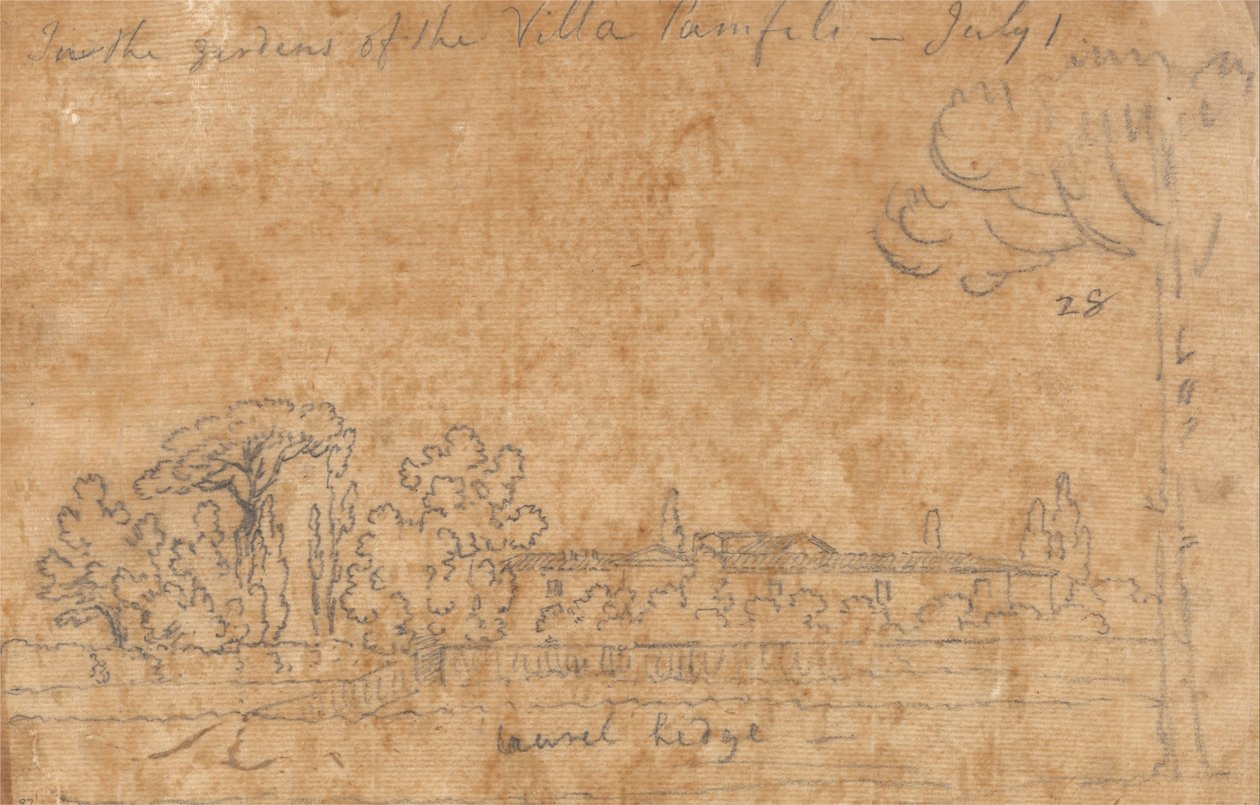 In the gardens of the Villa Pamfili — July 1
28
laurel hedge —